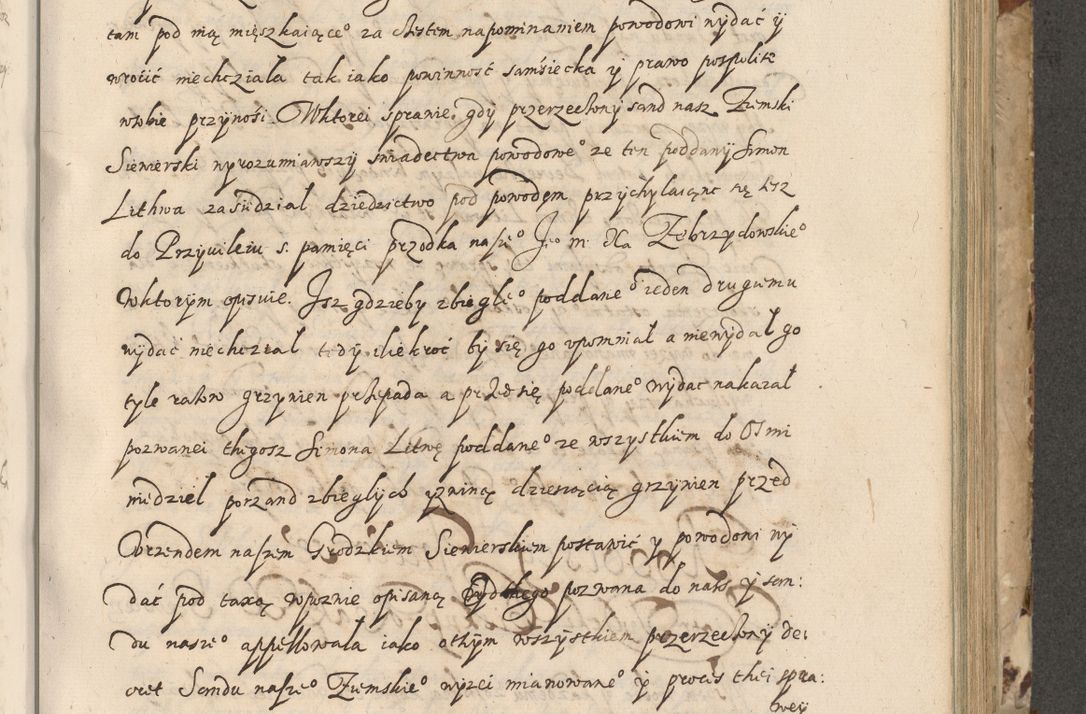 tam pod nią mięszkaiące⁰ za Listem napominaniem powodowi wydać ÿ
wrocić niechcziała tak iako powinność samsiecka ÿ prawo pospolite
wsobie przynosi. Wktorei sprawie, gdÿ przerzeczonÿ sand nasz Ziemski
Siewierski wÿrozumiawszÿ swiadectwa powodowe⁰ ze ten poddanÿ Simon
Lithwa zasiedział dziedzictwo pod powodem przÿchÿlaiąnc się tesz
do Prziwileiu s. pamięci przodka nasze⁰ Je⁰ m. Xa Zebrzÿdowskie⁰
wktorÿm opisuie. Jsz gdziebÿ zbiegłe⁰ poddane⁰ ieden drugiemu
wÿdać niechcział tedÿ ilekroć bÿ się go vpomniał a niewÿdał go
tÿle razow grzÿwien przepada a przedsię poddane⁰ wÿdac nakazał
pozwanei thegosz Simona Litwę poddane⁰ ze wszÿstkiem do Osmi
niedziel porzand zbiegłÿch winą dziesiącią grzÿwien przed
Vrzendem naszem Grodzkiem Siewierskiem postawić ÿ powodowi wÿ
dać pod taxą wpoznie opisaną pozwana do nas ÿ san:
du nasze⁰ appellowała iako othÿm wszÿstkiem przerzeczonÿ de:
cret Sandu nasze⁰ Ziemskie⁰ wÿżei mianowane⁰ ÿ proces thei spra:
weÿ